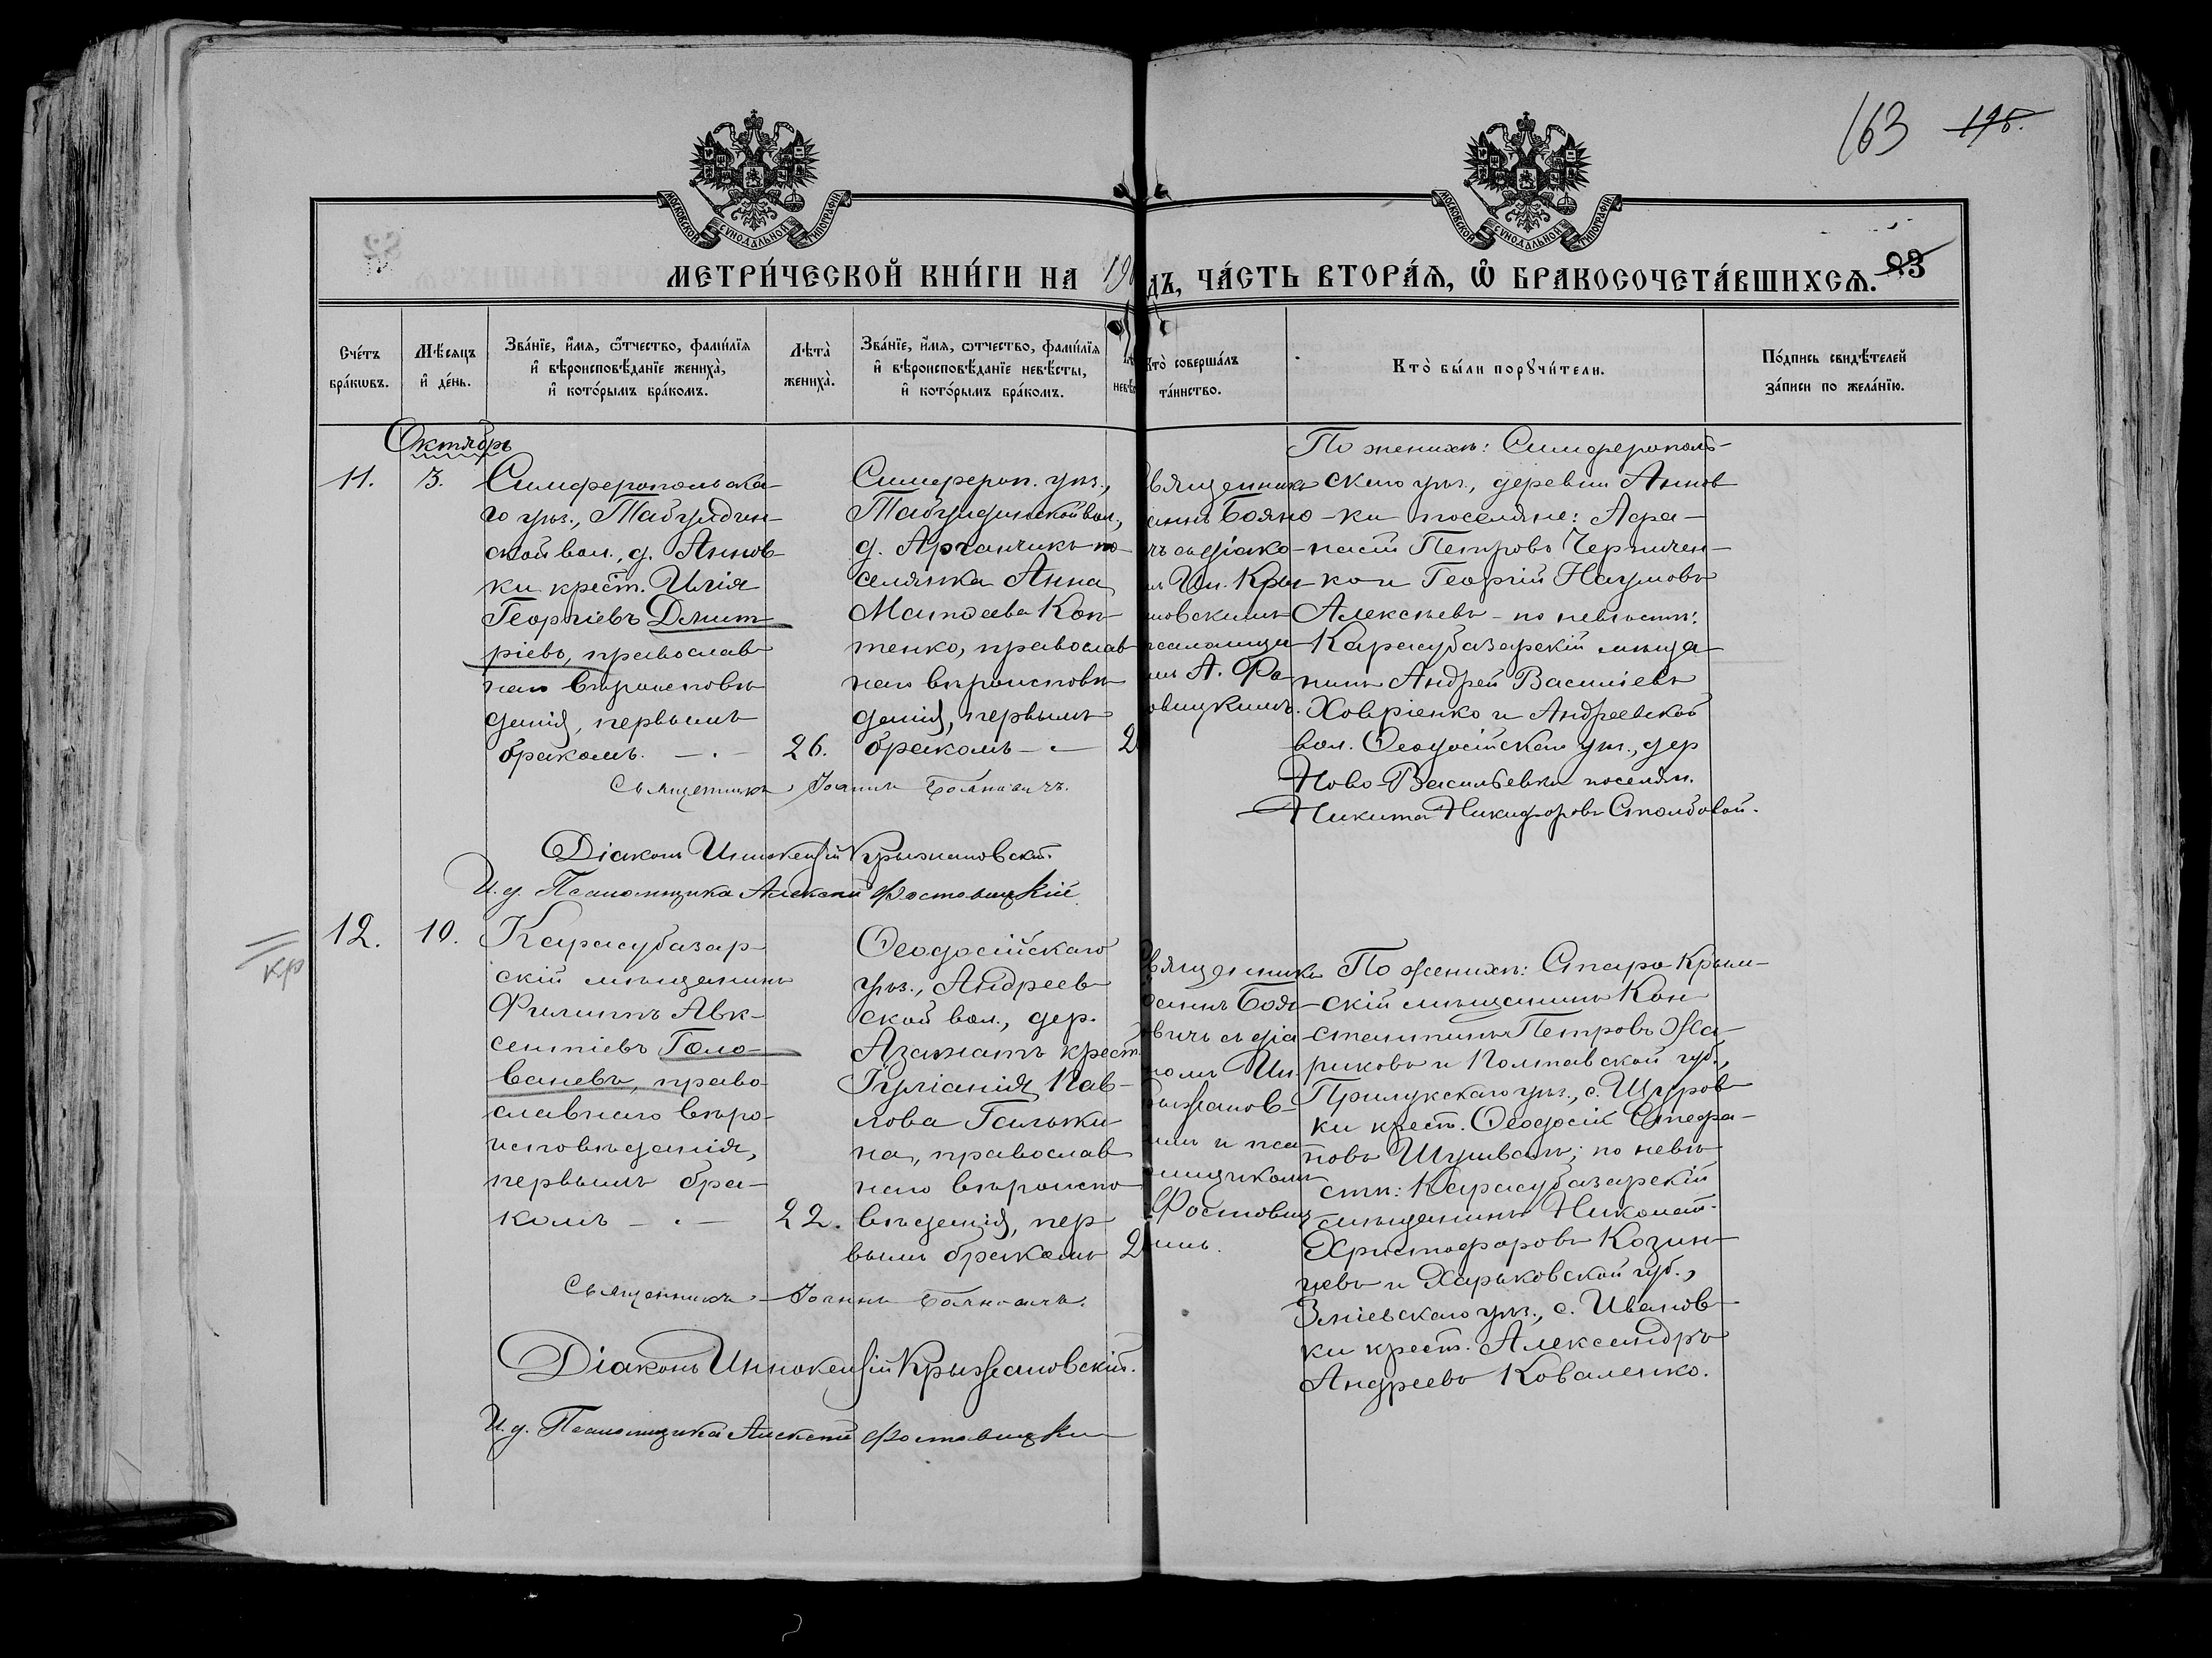 163 195.
МОСКОВСКОЙ СУНОДАЛЬНОЙ ТИПОГРАФІИ
МОСКОВСКОЙ СУНОДАЛЬНОЙ ТИПОГРАФІИ
МЕТРИ́ЧЕСКОЙ КНИ́ГИ НА 19
дъ, ЧА́СТЬ ВТОРА́Я, Ѡ БРАКОСОЧЕТА́ВШИХСЯ. 83
Сче́тъ бра́кѡвъ.
Мѣ́сяцъ и҆ де́нь.
Зва́нїе, и҆́мя, ѻ҆́тчество, фами́лїя и҆ вѣроисповѣ́данїе жениха̀, и҆ кото́рымъ бра́комъ.
Лѣта̀ жениха̀.
Зва́нїе, и҆́мя, ѻ҆́тчество, фами́лїя и҆ вѣроисповѣ́данїе невѣ́сты, и҆ кото́рымъ бра́комъ.
Кто̀ соверша́лъ та́инство.
Кто̀ бы́ли порꙋчи́тели.
По́дпись свидѣ́телей за́писи по жела́нїю.
Октябрь
11. 3.
Симферопольска
го уѣз., Табулдин-
ской вол., д. Аннов
ки крест. Илія
Георгіевъ Дмит
ріевъ, православ
наго вѣроисповѣ
данія, первымъ
бракомъ. 26.
Симфероп. уѣз.,
Табулдинской вол.,
д. Арганчикъ по
селянка Анна
Матѳеева Коп
тенко, православ
наго вѣроисповѣ
данія, первымъ
бракомъ 2
вященникъ
аннъ Бояно
чъ съ діако
мъ Ин. Кры
новскимъ
псаломщи
мъ А. Фо
овицкимъ.
По женихѣ: Симферополь-
скаго уѣз., деревни Аннов
ки поселяне: Афа-
насій Петровъ Черничен-
ко и Георгій Наумовъ
Алексѣевъ - по невѣстѣ:
Карасубазарскій мѣща
нинъ Андрей Василіевъ
Ховріенко и Андреевской
вол. Ѳеодосійскаго уѣз., дер
Ново-Васильевки поселян.
Никита Никифоровъ Столбовой.
Священникъ Іоаннъ Бояновичъ.
Діаконъ Иннокентій Крыжановскій.
И. д. Псаломщика Алексѣй Фостовицкій
12. 10.
кр
Карасубазар-
скій мѣщанинъ
Филиппъ Авк-
сентіевъ Голо-
ваневъ, право
славнаго вѣро-
исповѣданія,
первымъ бра-
комъ 22.
Ѳеодосійскаго
уѣз., Андреев
ской вол., дер.
Азаматъ крест.
Іуліанія Пав-
лова Галъки
на, православ
наго вѣроиспо
вѣданія, пер
вымъ бракомъ 2
вященникъ
оаннъ Боя
овичъ съ діа
номъ Ин
рыжанов-
имъ и пса
мщикомъ
Фостовиц
имъ.
По женихѣ: Старо Крым-
скій мѣщанинъ Кон
стантинъ Петровъ Жа-
риковъ и Полтавской губ.,
Прилукскаго уѣз., с. Щуров
ки крест. Ѳеодосій Стефа-
новъ Шуливалъ; по невѣ
стѣ: Карасубазарскій
мѣщанинъ Николай
Христофоровъ Козин
цевъ и Харьковской губ.,
Зміевскаго уѣз., с. Иванов
ки крест. Александръ
Андреевъ Коваленко.
Священникъ Іоаннъ Бояновичъ.
Діаконъ Иннокентій Крыжановскій.
И. д. Псаломщика Алексѣй Фостовицкій